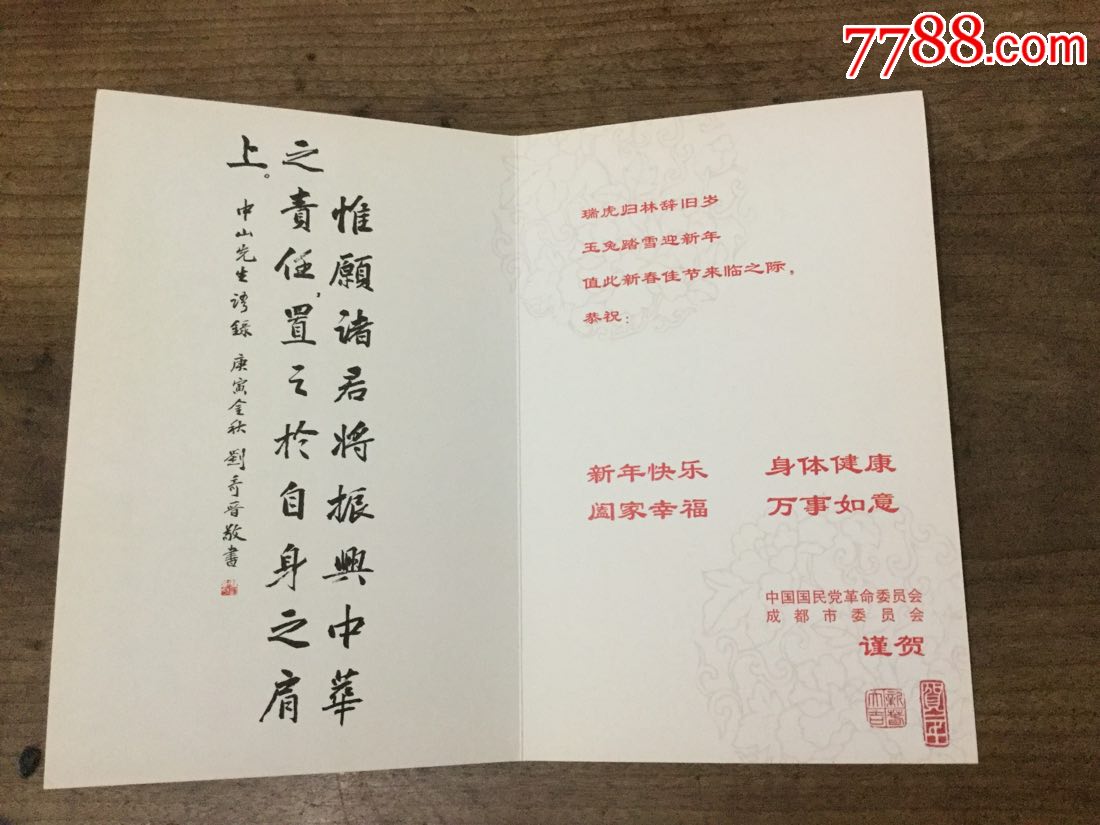 7788.com
惟願諸君将振興中華
之責任，置之於自身之肩
上。
中山先生語録 庚寅金秋 劉奇晋敬書
瑞虎归林辞旧岁
玉兔踏雪迎新年
值此新春佳节来临之际，
恭祝：
新年快乐 身体健康
阖家幸福 万事如意
中国国民党革命委员会
成都市委员会
谨贺
新春大吉
賀年